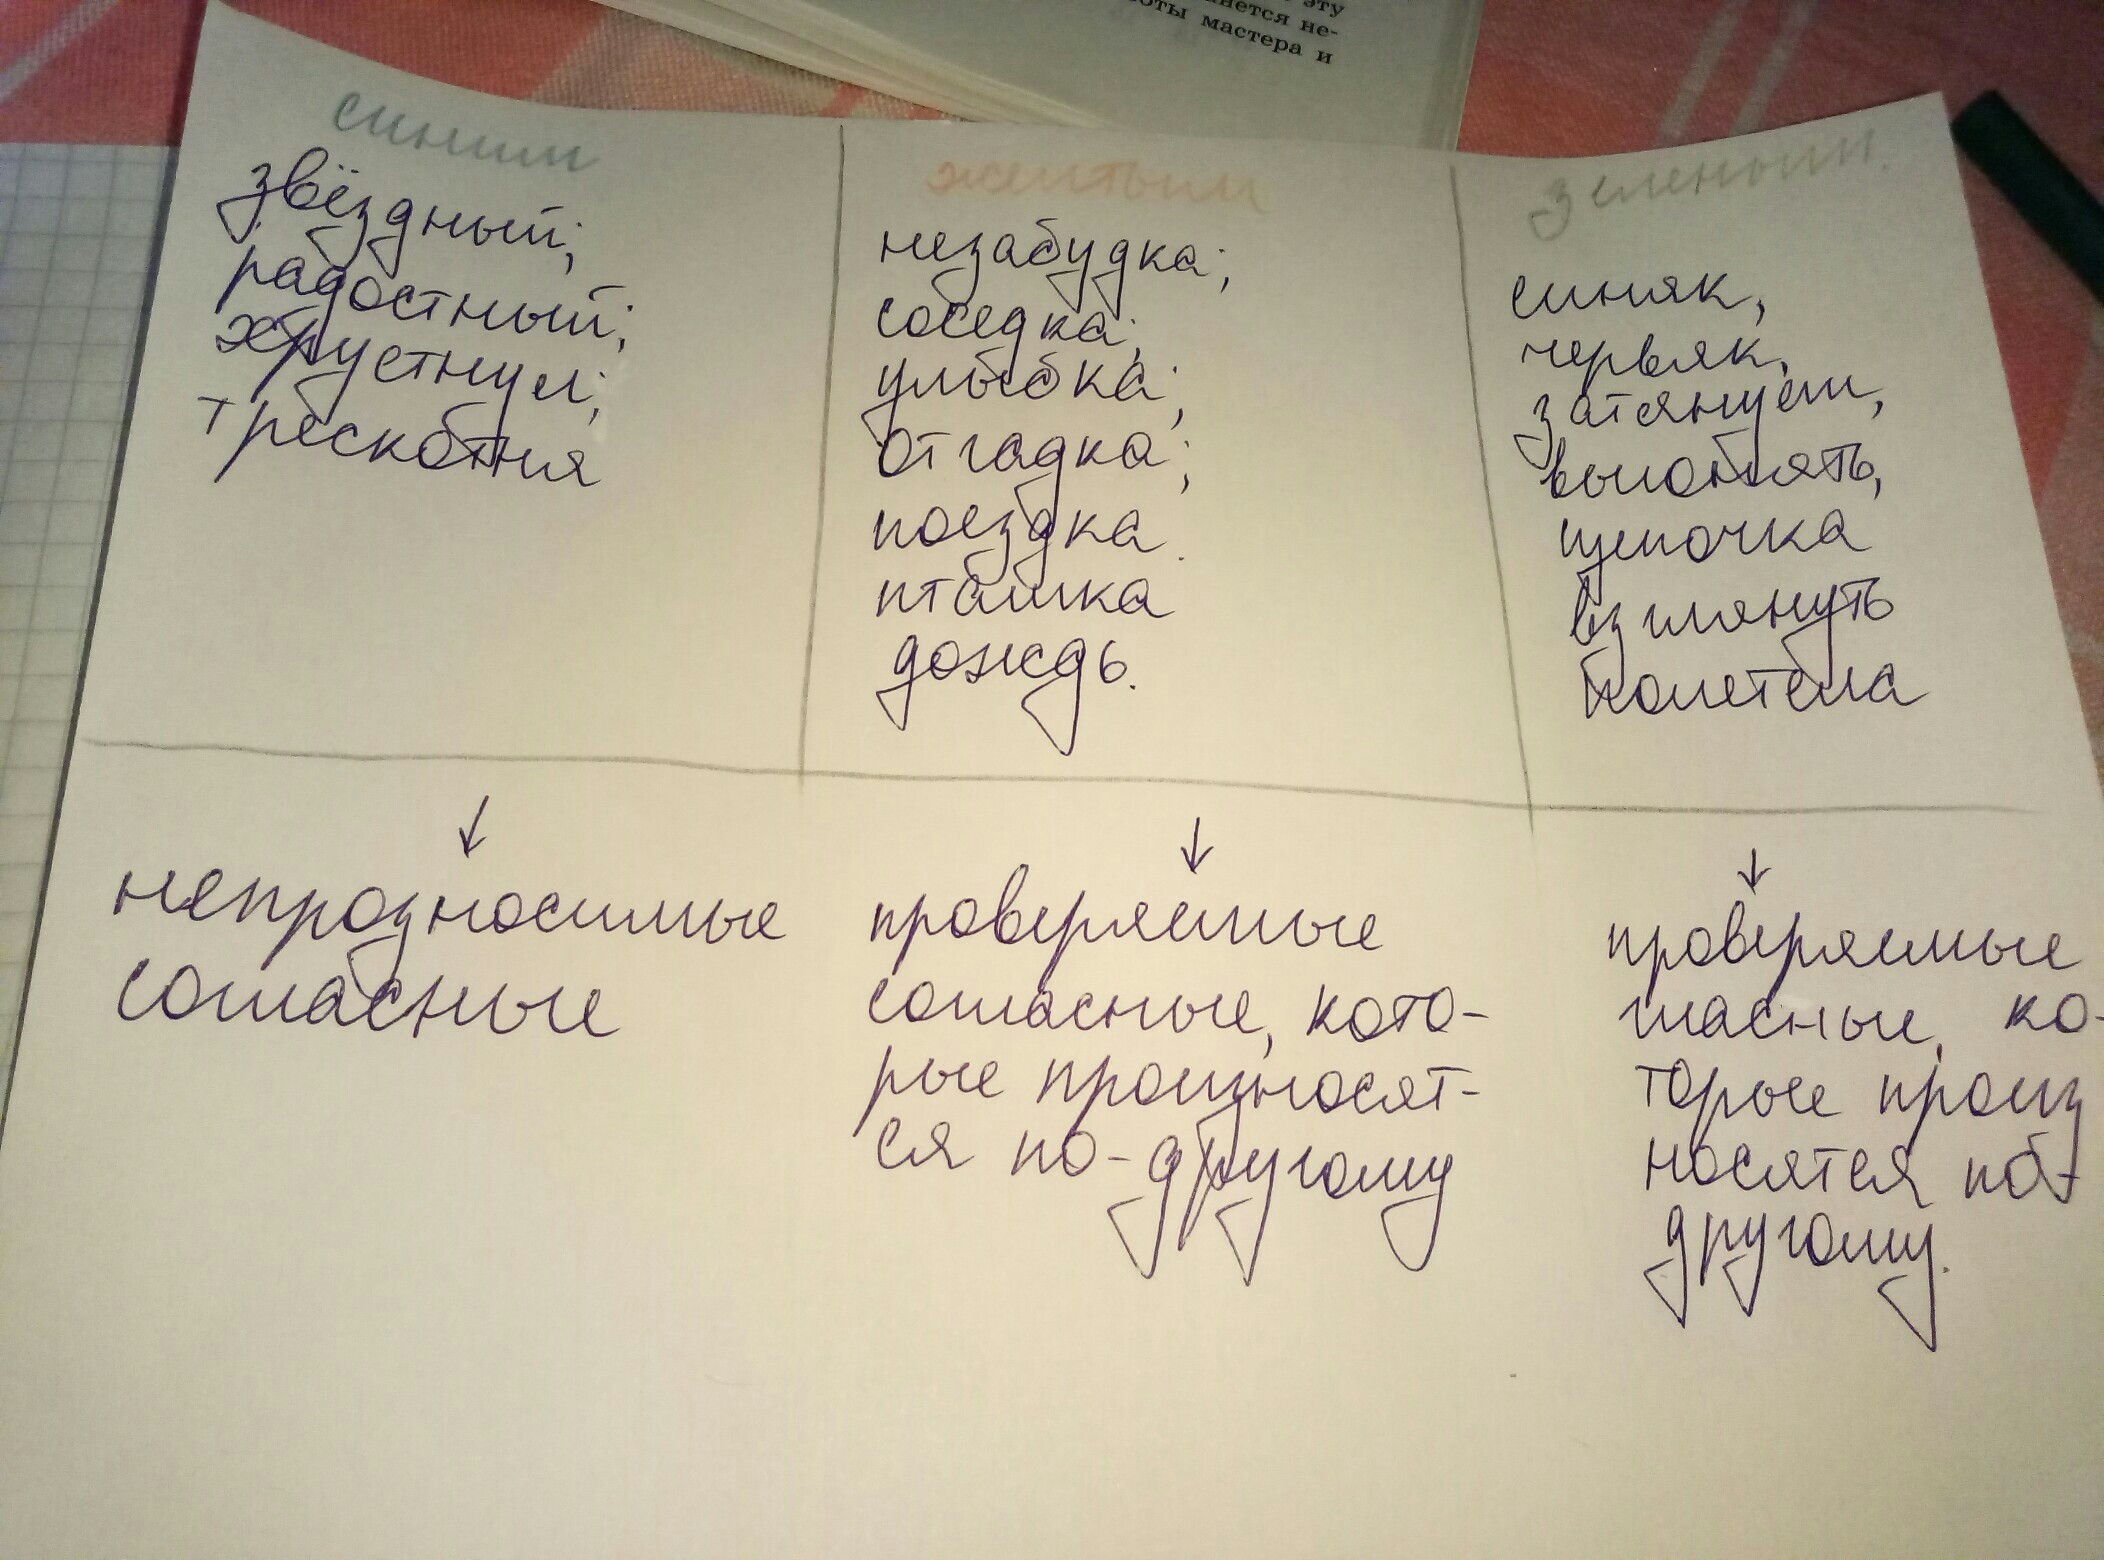 эту
нется не-
оты мастера и
синим
звёздный;
радостный;
хрустнул;
трескотня
жёлтым
незабудка;
соседка;
улыбка;
отгадка;
поездка.
пташка
дождь.
зеленым.
синяк,
червяк,
затянуем,
щепочка
взглянуть
полетела
непрозносимые
согласные
проверяемые
согласные, кото-
рые произносят-
ся по-другому
проверяемые
гласные, ко-
торые произ
носятся по-
другому.